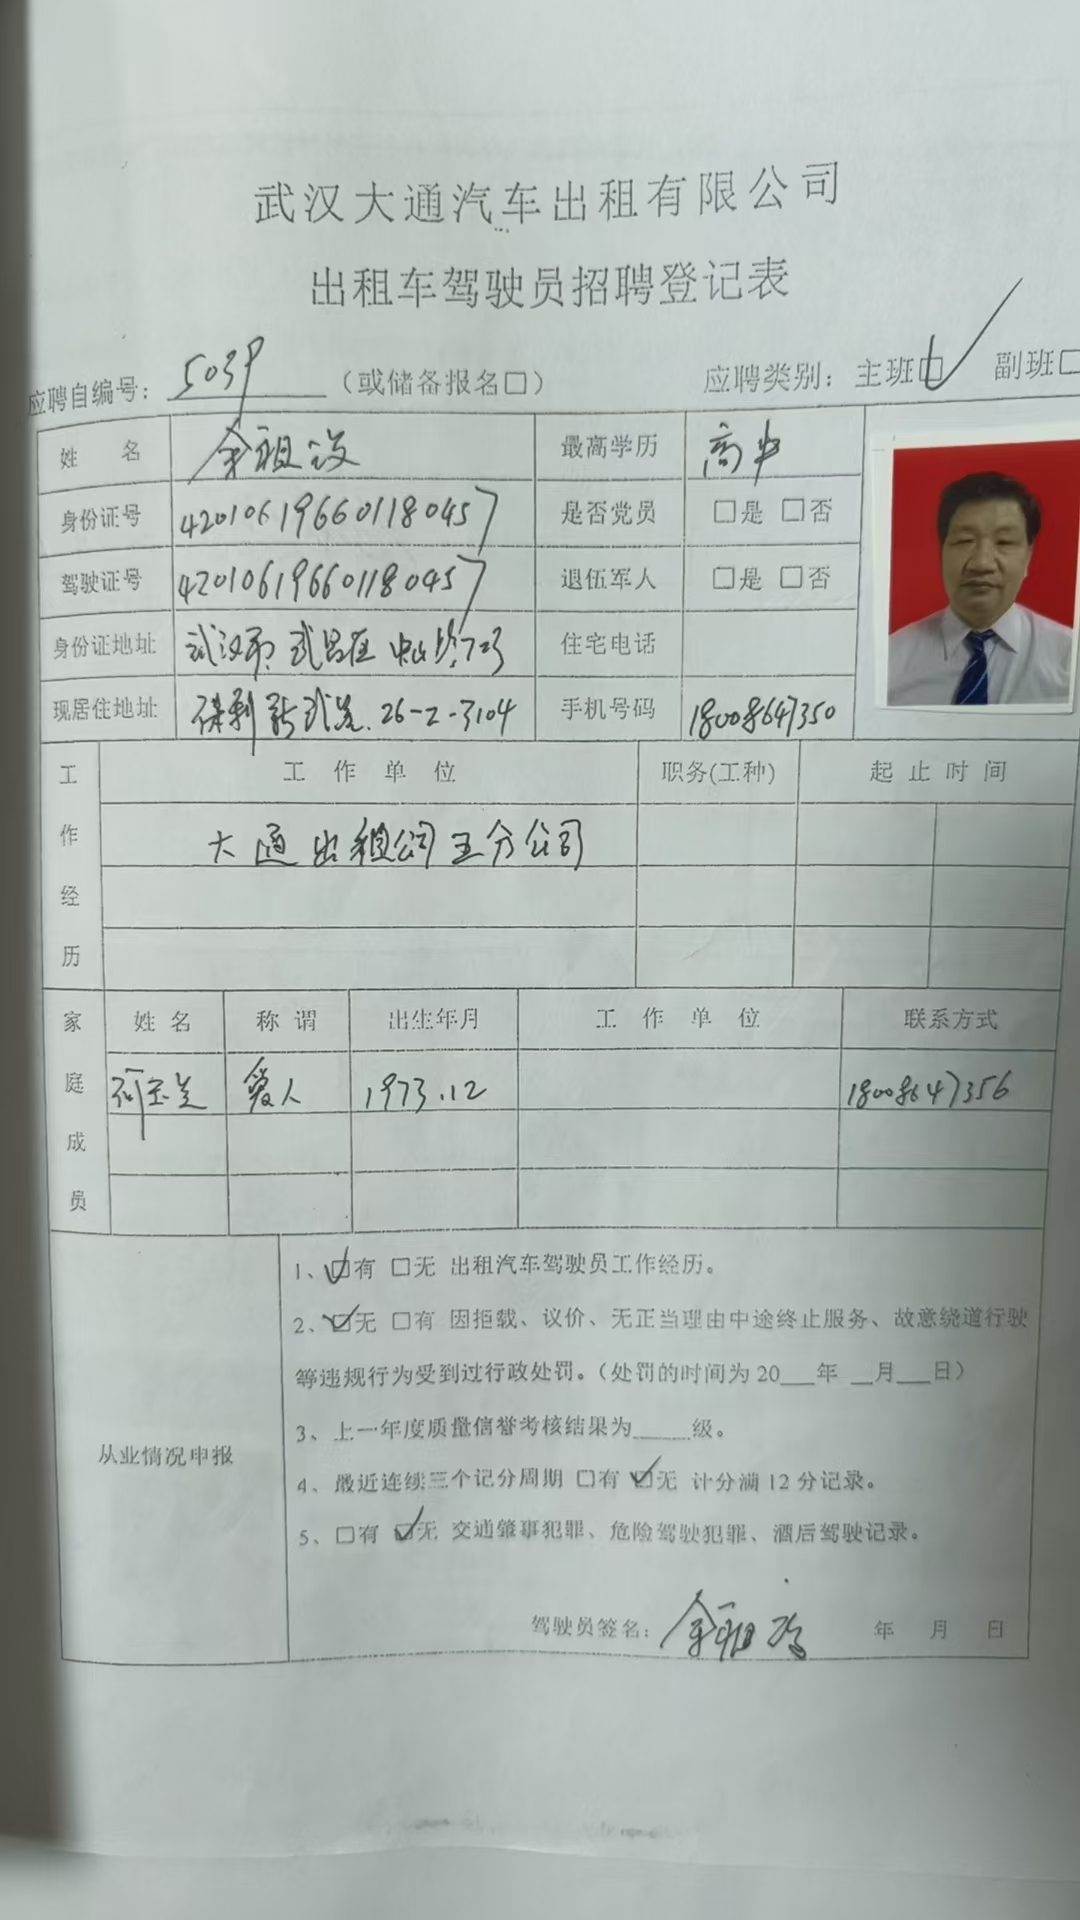 武汉大通汽车出租有限公司
出租车驾驶员招聘登记表
应聘自编号：5039（或储备报名□） 应聘类别：主班☑ 副班□
姓 名 余祖 最高学历 高中
身份证号 420106196601180457 是否党员 □是 □否
驾驶证号 420106196601180457 退伍军人 □是 □否
身份证地址 武汉市武昌区中山路723 住宅电话
现居住地址 保利新武昌.26-2-3104 手机号码 18008647350
工作经历 工 作 单 位 职务(工种) 起 止 时 间
大通出租公司五分公司
家庭成员 姓 名 称 谓 出生年月 工 作 单 位 联系方式
爱人 1973.12 18008647356
从业情况申报
1、☑有 □无 出租汽车驾驶员工作经历。
2、☑无 □有 因拒载、议价、无正当理由中途终止服务、故意绕道行驶
等违规行为受到过行政处罚。（处罚的时间为 20___年 __月___日）
3、上一年度质量信誉考核结果为_____级。
4、最近连续三个记分周期 □有 ☑无 计分满 12 分记录。
5、□有 ☑无 交通肇事犯罪、危险驾驶犯罪、酒后驾驶记录。
驾驶员签名：余祖 年 月 日